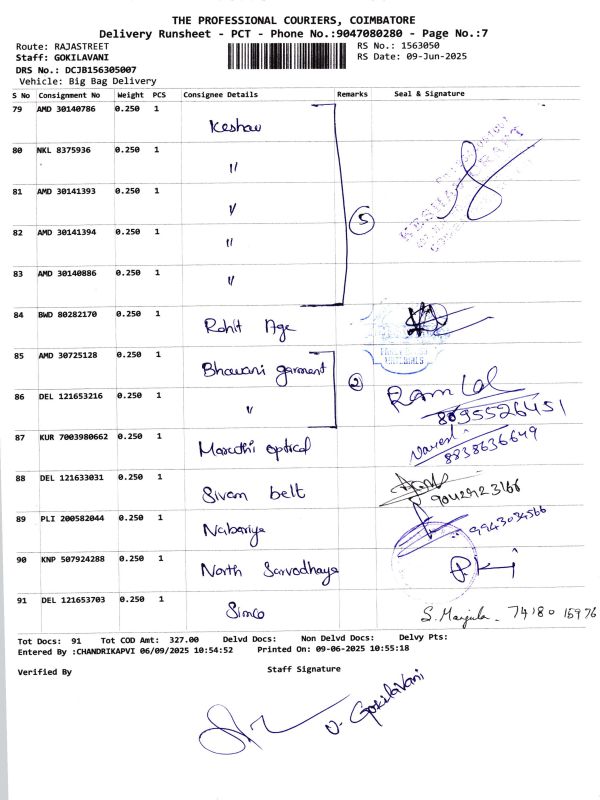 THE PROFESSIONAL COURIERS, COIMBATORE
Delivery Runsheet - PCT - Phone No.:9047080280 - Page No.:7
Route: RAJASTREET RS No.: 1563050
Staff: GOKILAVANI RS Date: 09-Jun-2025
DRS No.: DCJB156305007
Vehicle: Big Bag Delivery
S No Consignment No Weight PCS Consignee Details Remarks Seal & Signature
79 AMD 30140786 0.250 1 Keshav
80 NKL 8375936 0.250 1 "
81 AMD 30141393 0.250 1 " 5
82 AMD 30141394 0.250 1 "
83 AMD 30140886 0.250 1 "
84 BWD 80282170 0.250 1 Rohit Age
MATERIALS
85 AMD 30725128 0.250 1 Bhavani garment 2
86 DEL 121653216 0.250 1 " Ram Lal
8695526451
87 KUR 7003980662 0.250 1 Maruthi optical
8838636649
88 DEL 121633031 0.250 1 Sivam belt
89 PLI 200582044 0.250 1 Nabariya 9943034566
90 KNP 507924288 0.250 1 North Sarvodhaya
91 DEL 121653703 0.250 1 Simco S. Manjula - 74180 15976
Tot Docs: 91 Tot COD Amt: 327.00 Delvd Docs: Non Delvd Docs: Delvy Pts:
Entered By :CHANDRIKAPVI 06/09/2025 10:54:52 Printed On: 09-06-2025 10:55:18
Verified By Staff Signature
V. Gokilavani